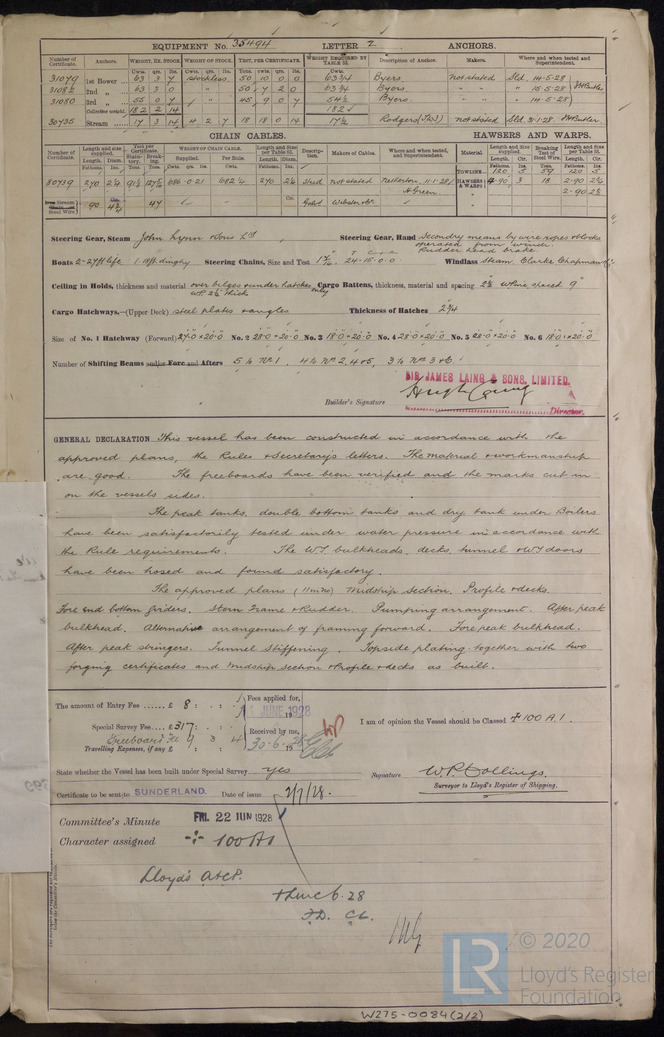 EQUIPMENT No. 35494 LETTER Z ANCHORS.
Number of Certificate. Anchors. WEIGHT, EX. STOCK. WEIGHT OF STOCK. TEST, PER CERTIFICATE. WEIGHT REQUIRED BY TABLE 53. Description of Anchor. Makers. Where and when tested and Superintendent.
Cwts. qrs. lbs. Tons. cwts. qrs. lbs. Cwts.
31079 1st Bower 63 3 7 Stockless 50 10 0 0 63¾ Byers not stated Sld. 14-5-28
31082 2nd „ 63 3 0 „ „ 50 7 2 0 63¾ Byers „ „ „ 15-5-28 JHButler
31080 3rd „ 55 0 7 „ 45 9 0 7 54½ Byers. „ „ „ 14-5-28
Collective weight. 182 2 14 182
30735 Stream 17 3 14 4 2 7 18 18 0 14 17½ Rodgers not stated Sld. 3-1-28 JHButler
CHAIN CABLES. HAWSERS AND WARPS.
Number of Certificate. Length and size supplied. Test per Certificate. WEIGHT OF CHAIN CABLE. Length and Size per Table 53. Description. Makers of Cables. Where and when tested, and Superintendent. Material. Length and Size supplied. Breaking Test of Steel Wire. Length and Size per Table 53.
Length. Diam. Statutory. Breaking. Supplied. Per Rule. Length. Diam. Length. Cir. Length. Cir.
TOWLINE 120 5 59 120 5
30739 270 2¼ 91⅛ 127½ 686-0-21 682¼ 270 2¼ Stud not stated Netherton 11-1-28 HAWSERS & WARPS 4-90 3 18 2-90 2½
A Green 2-90 2½
Stream Steel Wire 90 4¾ 47
Steering Gear, Steam John Lynn & Sons Ld Steering Gear, Hand Secondry means by wire ropes & blocks
operated from winch.
Rudder head brake
Boats 2-27ft life 1-18ft dinghy Steering Chains, Size and Test 1 7/16 24-15-0-0 Windlass Steam Clarke Chapman
Ceiling in Holds, thickness and material over bilges & under hatches only Cargo Battens, thickness, material and spacing 2½ W Pine, spaced 9"
WP 2½ thick
Cargo Hatchways.—(Upper Deck) steel plates & angles Thickness of Hatches 2¾
Size of No. 1 Hatchway (Forward) 27-0×20-0 No. 2 28-0×20-0 No. 3 18-0×20-0 No. 4 28-0×20-0 No. 5 28-0×20-0 No. 6 18-0×20-0
Number of Shifting Beams and/or Fore and Afters 5 in No 1, 4 in Nos 2, 4 & 5, 3 in Nos 3 & 6.
SIR JAMES LAING & SONS, LIMITED.
Builder's Signature Hugh Laing
Director.
GENERAL DECLARATION This vessel has been constructed in accordance with the
approved plans, the Rules & Secretary's letters. The material & workmanship
are good. The freeboards have been verified and the marks cut in
on the vessels sides.
The peak tanks, double bottom tanks and dry tank under Boilers
have been satisfactorily tested under water pressure in accordance with
the Rule requirements. The WT bulkheads, decks, tunnel & WT doors
have been hosed and found satisfactory.
The approved plans (11 in No) Midship section. Profile & decks.
Fore end bottom girders. Stern Frame & Rudder. Pumping arrangement. After peak
bulkhead. Alternative arrangement of framing forward. Fore peak bulkhead.
After peak stringers. Tunnel Stiffening. Topside plating together with two
forging certificates and Midship section & Profile & decks as built.
The amount of Entry Fee £ 8 : : Fees applied for,
JUNE 1928
Special Survey Fee £ 317 : : Received by me,
Freeboard Fee 9 3 4 30-6-28
Travelling Expenses, if any £ : :
I am of opinion the Vessel should be Classed ✠ 100 A.1.
State whether the Vessel has been built under Special Survey yes Signature W.P. Collings.
Surveyor to Lloyd's Register of Shipping.
Certificate to be sent to SUNDERLAND. Date of issue 2/7/28.
Committee's Minute FRI. 22 JUN 1928
Character assigned ✠ 100 A1
Lloyd's A&CP.
+ LMC 6.28
F.D. CL.
© 2020
LR Lloyd's Register
Foundation
W275-0084(2/2)